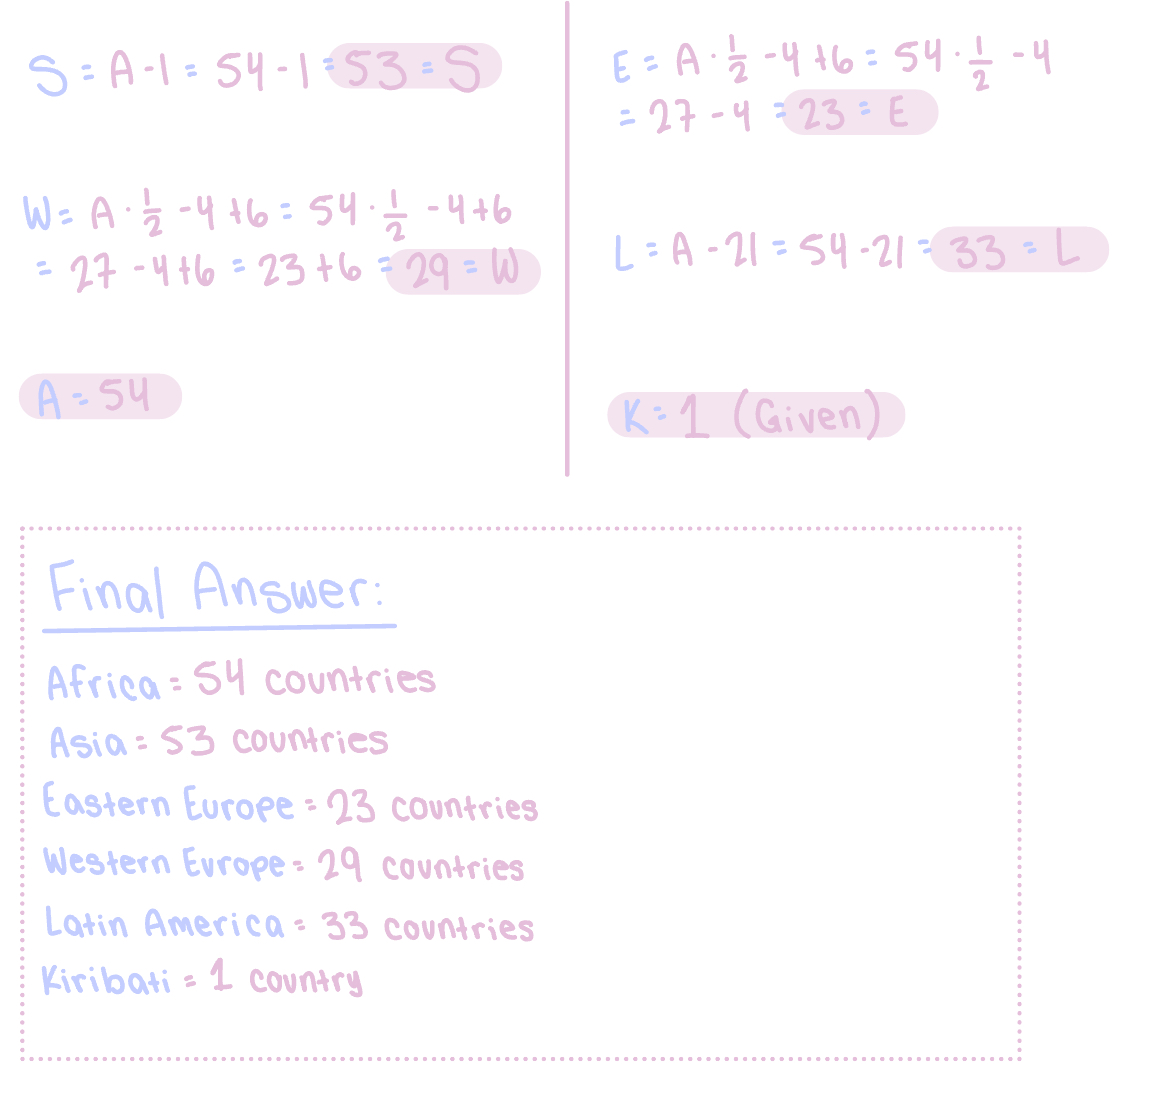 S = A - 1 = 54 - 1 = 53 = S
W = A · 1/2 - 4 + 6 = 54 · 1/2 - 4 + 6
= 27 - 4 + 6 = 23 + 6 = 29 = W
A = 54
E = A · 1/2 - 4 + 6 = 54 · 1/2 - 4
= 27 - 4 = 23 = E
L = A - 21 = 54 - 21 = 33 = L
K = 1 (Given)
Final Answer:
Africa = 54 countries
Asia = 53 countries
Eastern Europe = 23 countries
Western Europe = 29 countries
Latin America = 33 countries
Kiribati = 1 country